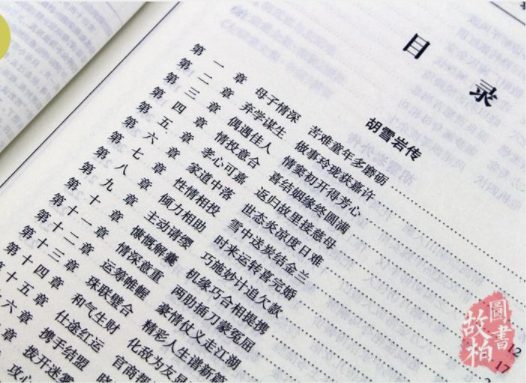 目录
胡雪岩传
第一章 母子情深 苦难童年多磨砺
第二章 弃学谋生 做事玲珑获嘉许
第三章 偶遇佳人 情窦初开待芳心
第四章 情投意合 喜结姻缘终圆满
第五章 孝心可嘉 返归故里接慈母
第六章 家道中落 世态炎凉度日难
第七章 性情相投 雪中送炭结金兰
第八章 倾力相助 时来运转喜完婚
第九章 主动请缨 巧施妙计追欠款
第十章 慷慨解囊 机缘巧合相提携
第十一章 情深意重 两肋插刀蒙冤屈
第十二章 运筹帷幄 豪情仗义走江湖
第十三章 珠联璧合 精彩人生谱新篇
第十四章 和气生财 化敌为友显
十五章 仕途红运 官商
六章 携手结盟
拨开迷雾
攻心
12
17
故柏圖書